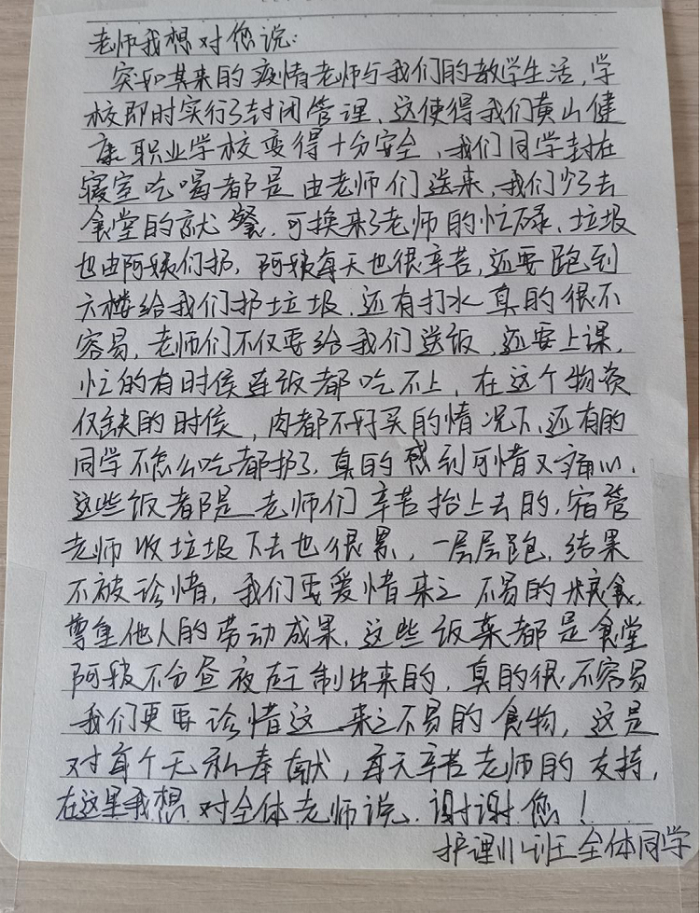 老师我想对您说:
突如其来的疫情老师与我们的教学生活,学
校即时实行了封闭管理,这使得我们黄山健
康职业学校变得十分安全,我们同学封在
寝室吃喝都是由老师们送来,我们少了去
食堂的就餐,可换来了老师的忙碌,垃圾
也由阿姨们扔,阿姨每天也很辛苦,还要跑到
六楼给我们扔垃圾,还有打水真的很不
容易,老师们不仅要给我们送饭,还要上课,
忙的有时候连饭都吃不上,在这个物资
仅缺的时候,肉都不好买的情况下,还有的
同学不怎么吃都扔了,真的感到可惜又痛心,
这些饭都是老师们辛苦抬上去的,宿管
老师收垃圾下去也很累,一层层跑,结果
不被珍惜,我们要爱惜来之不易的粮食,
尊重他人的劳动成果,这些饭菜都是食堂
阿姨不分昼夜赶制出来的,真的很不容易
我们更要珍惜这来之不易的食物,这是
对每个无私奉献,每天辛苦老师的支持,
在这里我想对全体老师说,谢谢您!
护理11班全体同学